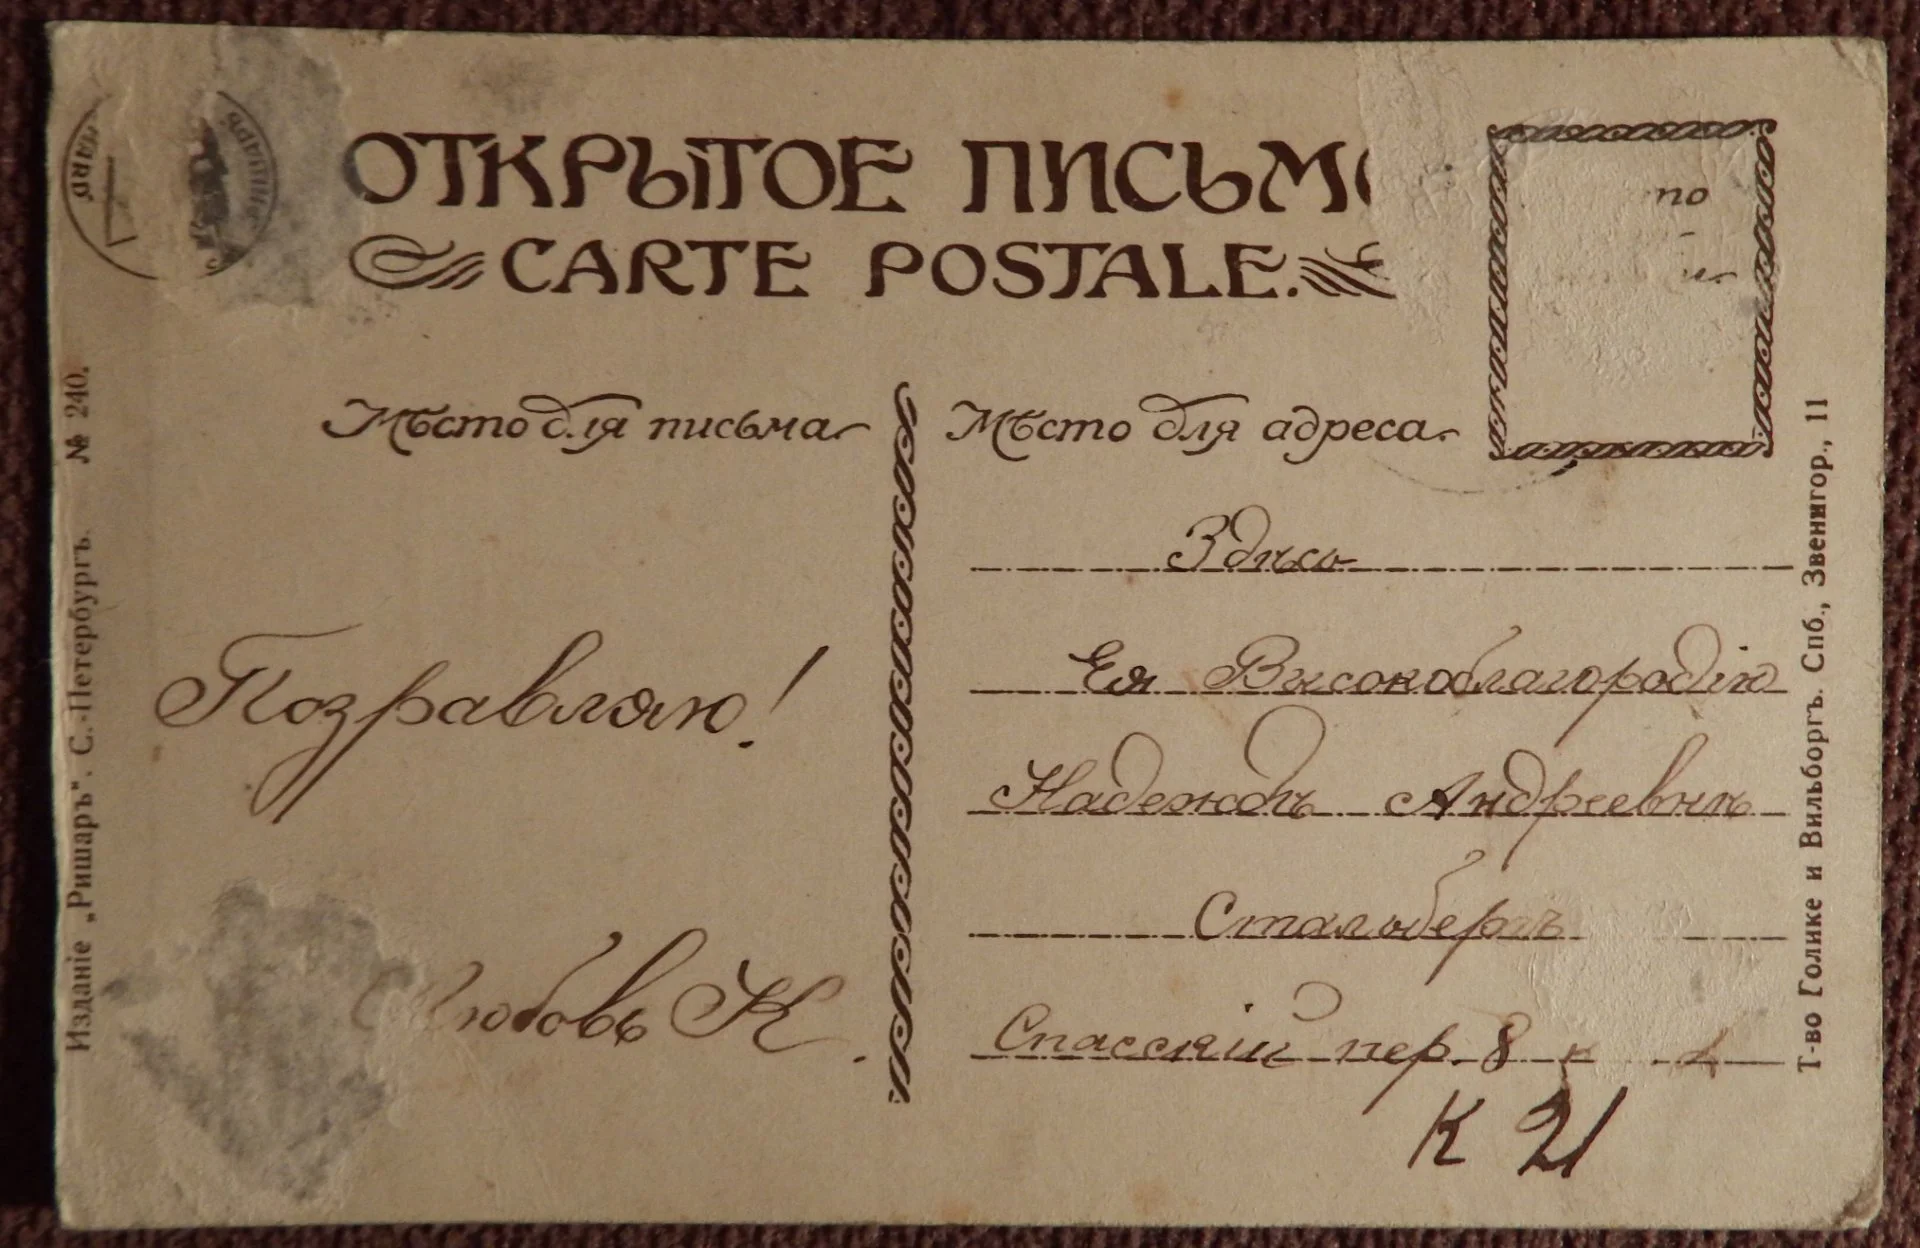 ОТКРЫТОЕ ПИСЬМО
CARTE POSTALE.
Мѣсто для письма
Мѣсто для адреса
Поздравляю!
Любовь К.
Здѣсь
Ея Высокоблагородію
Надеждѣ Андреевнѣ
Стальбергъ
Спасскій пер. 8 к
К 21
Изданіе „Ришаръ". С.-Петербургъ. № 240.
Т-во Голике и Вильборгъ. Спб., Звенигор., 11